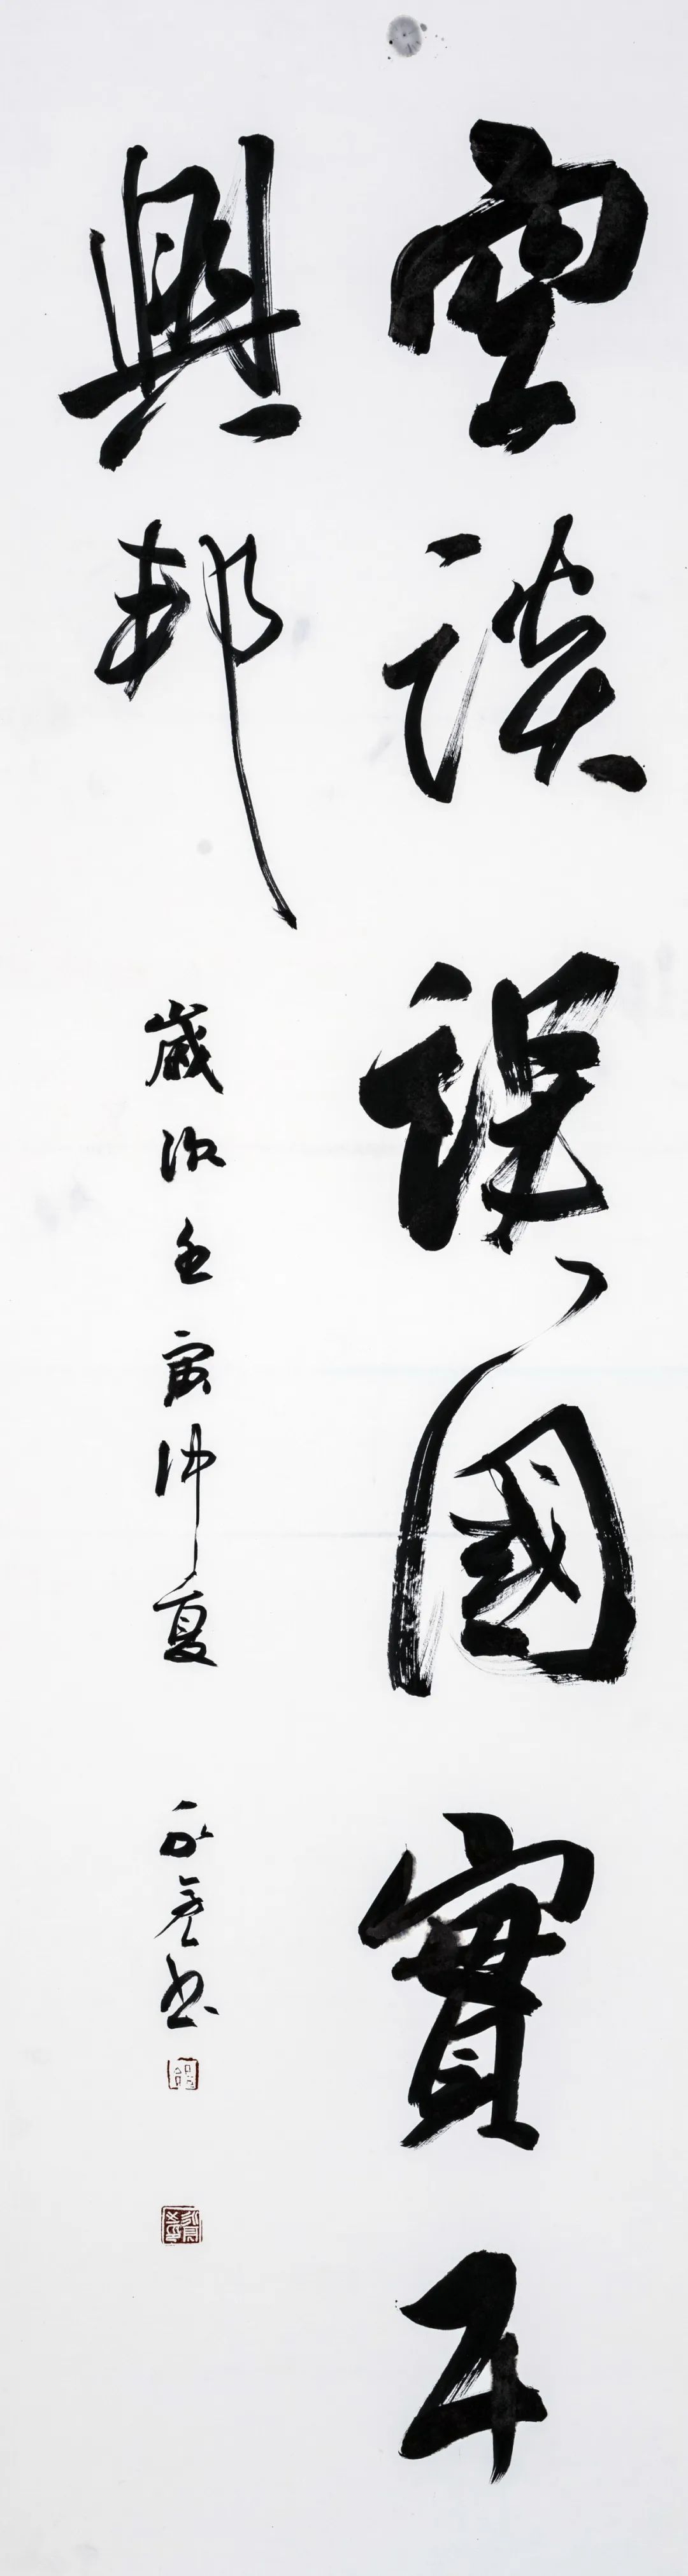 空談誤國實干
興邦
歲次壬寅仲夏
書